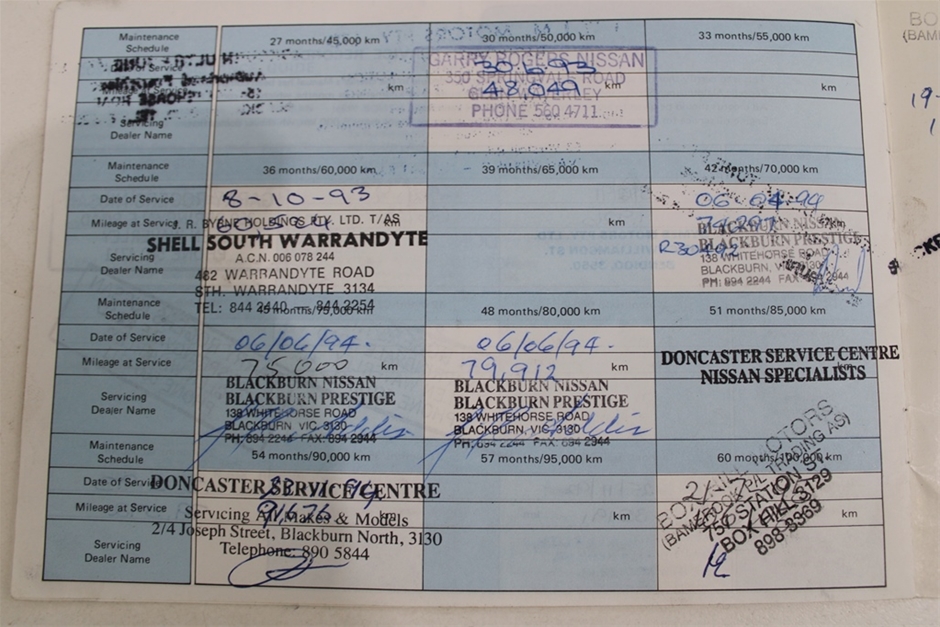 Maintenance Schedule
27 months/45,000 km
30 months/50,000 km
33 months/55,000 km
GARRY ROGERS NISSAN
30.6.93
350 SPRINGVALE ROAD
48,049 km
km
km
PHONE 560 4711
Servicing Dealer Name
Maintenance Schedule
36 months/60,000 km
39 months/65,000 km
42 months/70,000 km
Date of Service
8-10-93
06 04 94
Mileage at Service
J. R. BYRNE HOLDINGS PTY. LTD. T/AS
km
SHELL SOUTH WARRANDYTE
A.C.N. 006 078 244
482 WARRANDYTE ROAD
STH. WARRANDYTE 3134
TEL: 844 2440 844 2254
Servicing Dealer Name
BLACKBURN NISSAN
BLACKBURN PRESTIGE
138 WHITEHORSE ROAD
BLACKBURN, VIC. 3130
PH: 894 2244 FAX: 894 2944
Maintenance Schedule
45 months/75,000 km
48 months/80,000 km
51 months/85,000 km
Date of Service
06/06/94.
06/06/94.
Mileage at Service
75000 km
79,912 km
DONCASTER SERVICE CENTRE
NISSAN SPECIALISTS
Servicing Dealer Name
BLACKBURN NISSAN
BLACKBURN PRESTIGE
138 WHITEHORSE ROAD
BLACKBURN VIC. 3130
PH: 894 2244 FAX: 894 2944
BLACKBURN NISSAN
BLACKBURN PRESTIGE
138 WHITEHORSE ROAD
BLACKBURN, VIC. 3130
PH: 894 2244 FAX: 894 2944
Maintenance Schedule
54 months/90,000 km
57 months/95,000 km
60 months/100,000 km
Date of Service
DONCASTER SERVICE CENTRE
Mileage at Service
91,676
km
km
Servicing All Makes & Models
2/4 Joseph Street, Blackburn North, 3130
Telephone: 890 5844
Servicing Dealer Name
BOX HILL MOTORS
STATION ST
BOX HILL 3129
898-8369